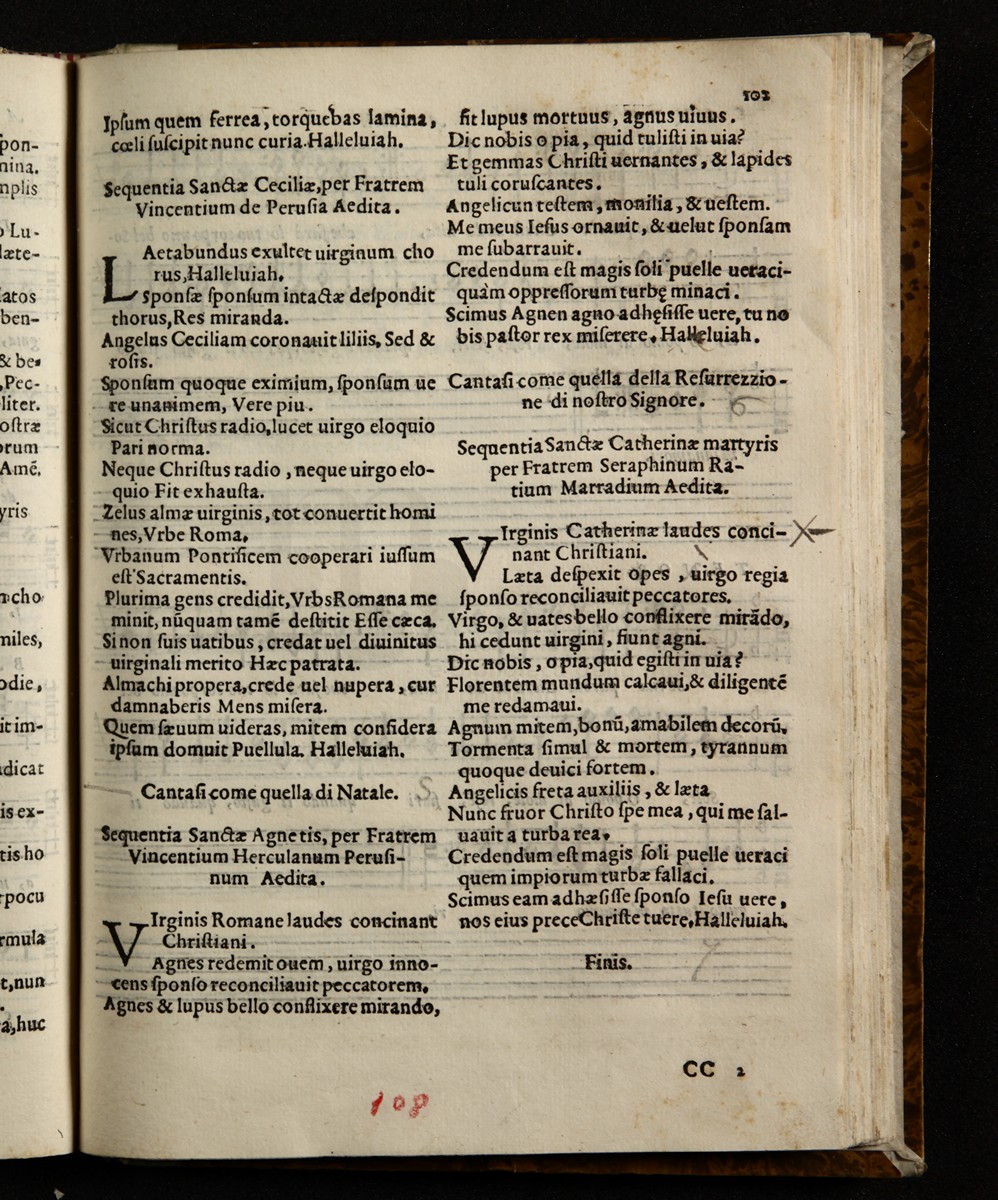 pon-
nina.
mplis
o Lu-
læte-
latos
ben-
& be
,Pec-
liter.
oſtræ
orum
Amẽ.
yris
n cho
niles,
odie,
it im-
adicat
is ex-
tis ho
pocu
rmula
t, nun
a, huc
102
Ipſum quem ferrea, torquebas lamina,
cœli ſuſcipit nunc curia. Halleluiah.
Sequentia Sanctæ Ceciliæ, per Fratrem
Vincentium de Peruſia Aedita.
LAetabundus exultet uirginum cho
rus, Halleluiah.
Sponſæ ſponſum intactæ deſpondit
thorus, Res miranda.
Angelus Ceciliam coronauit liliis, Sed &
roſis.
Sponſum quoque eximium, ſponſum ue
re unanimem, Vere piu.
Sicut Chriſtus radio, lucet uirgo eloquio
Pari norma.
Neque Chriſtus radio, neque uirgo elo-
quio Fit exhauſta.
Zelus almæ uirginis, tot conuertit homi
nes, Vrbe Roma.
Vrbanum Pontificem cooperari iuſſum
eſt Sacramentis.
Plurima gens credidit, Vrbs Romana me
minit, nũquam tamẽ deſtitit Eſſe cæca.
Si non ſuis uatibus, credat uel diuinitus
uirginali merito Hæc patrata.
Almachi propera, crede uel nupera, cur
damnaberis Mens miſera.
Quem ſæuum uideras, mitem conſidera
ipſum domuit Puellula. Halleluiah.
Cantaſi come quella di Natale. 5
Sequentia Sanctæ Agnetis, per Fratrem
Vincentium Herculanum Peruſi-
num Aedita.
VIrginis Romane laudes concinant
Chriſtiani.
Agnes redemit ouem, uirgo inno-
cens ſponſo reconciliauit peccatorem.
Agnes & lupus bello conflixere mirando,
fit lupus mortuus, agnus uiuus.
Dic nobis o pia, quid tuliſti in uia?
Et gemmas Chriſti uernantes, & lapides
tuli coruſcantes.
Angelicun teſtem, monilia, & ueſtem.
Me meus Ieſus ornauit, & uelut ſponſam
me ſubarrauit.
Credendum eſt magis ſoli puelle ueraci-
quàm oppreſſorum turbę minaci.
Scimus Agnen agno adhęſiſſe uere, tu no
bis paſtor rex miſerere. Halleluiah.
Cantaſi come quella della Reſurrezzio-
ne di noſtro Signore. 6
Sequentia Sanctæ Catherinæ martyris
per Fratrem Seraphinum Ra-
tium Marradium Aedita.
VIrginis Catherinæ laudes conci-
nant Chriſtiani.
Læta deſpexit opes, uirgo regia
ſponſo reconciliauit peccatores.
Virgo, & uates bello conflixere mirãdo,
hi cedunt uirgini, fiunt agni.
Dic nobis, o pia, quid egiſti in uia?
Florentem mundum calcaui, & diligentẽ
me redamaui.
Agnum mitem, bonũ, amabilem decorũ,
Tormenta ſimul & mortem, tyrannum
quoque deuici fortem.
Angelicis freta auxiliis, & læta
Nunc fruor Chriſto ſpe mea, qui me ſal-
uauit a turba rea.
Credendum eſt magis ſoli puelle ueraci
quem impiorum turbæ fallaci.
Scimus eam adhæſiſſe ſponſo Ieſu uere,
nos eius prece Chriſte tuere, Halleluiah.
Finis. 7
CC 2
108